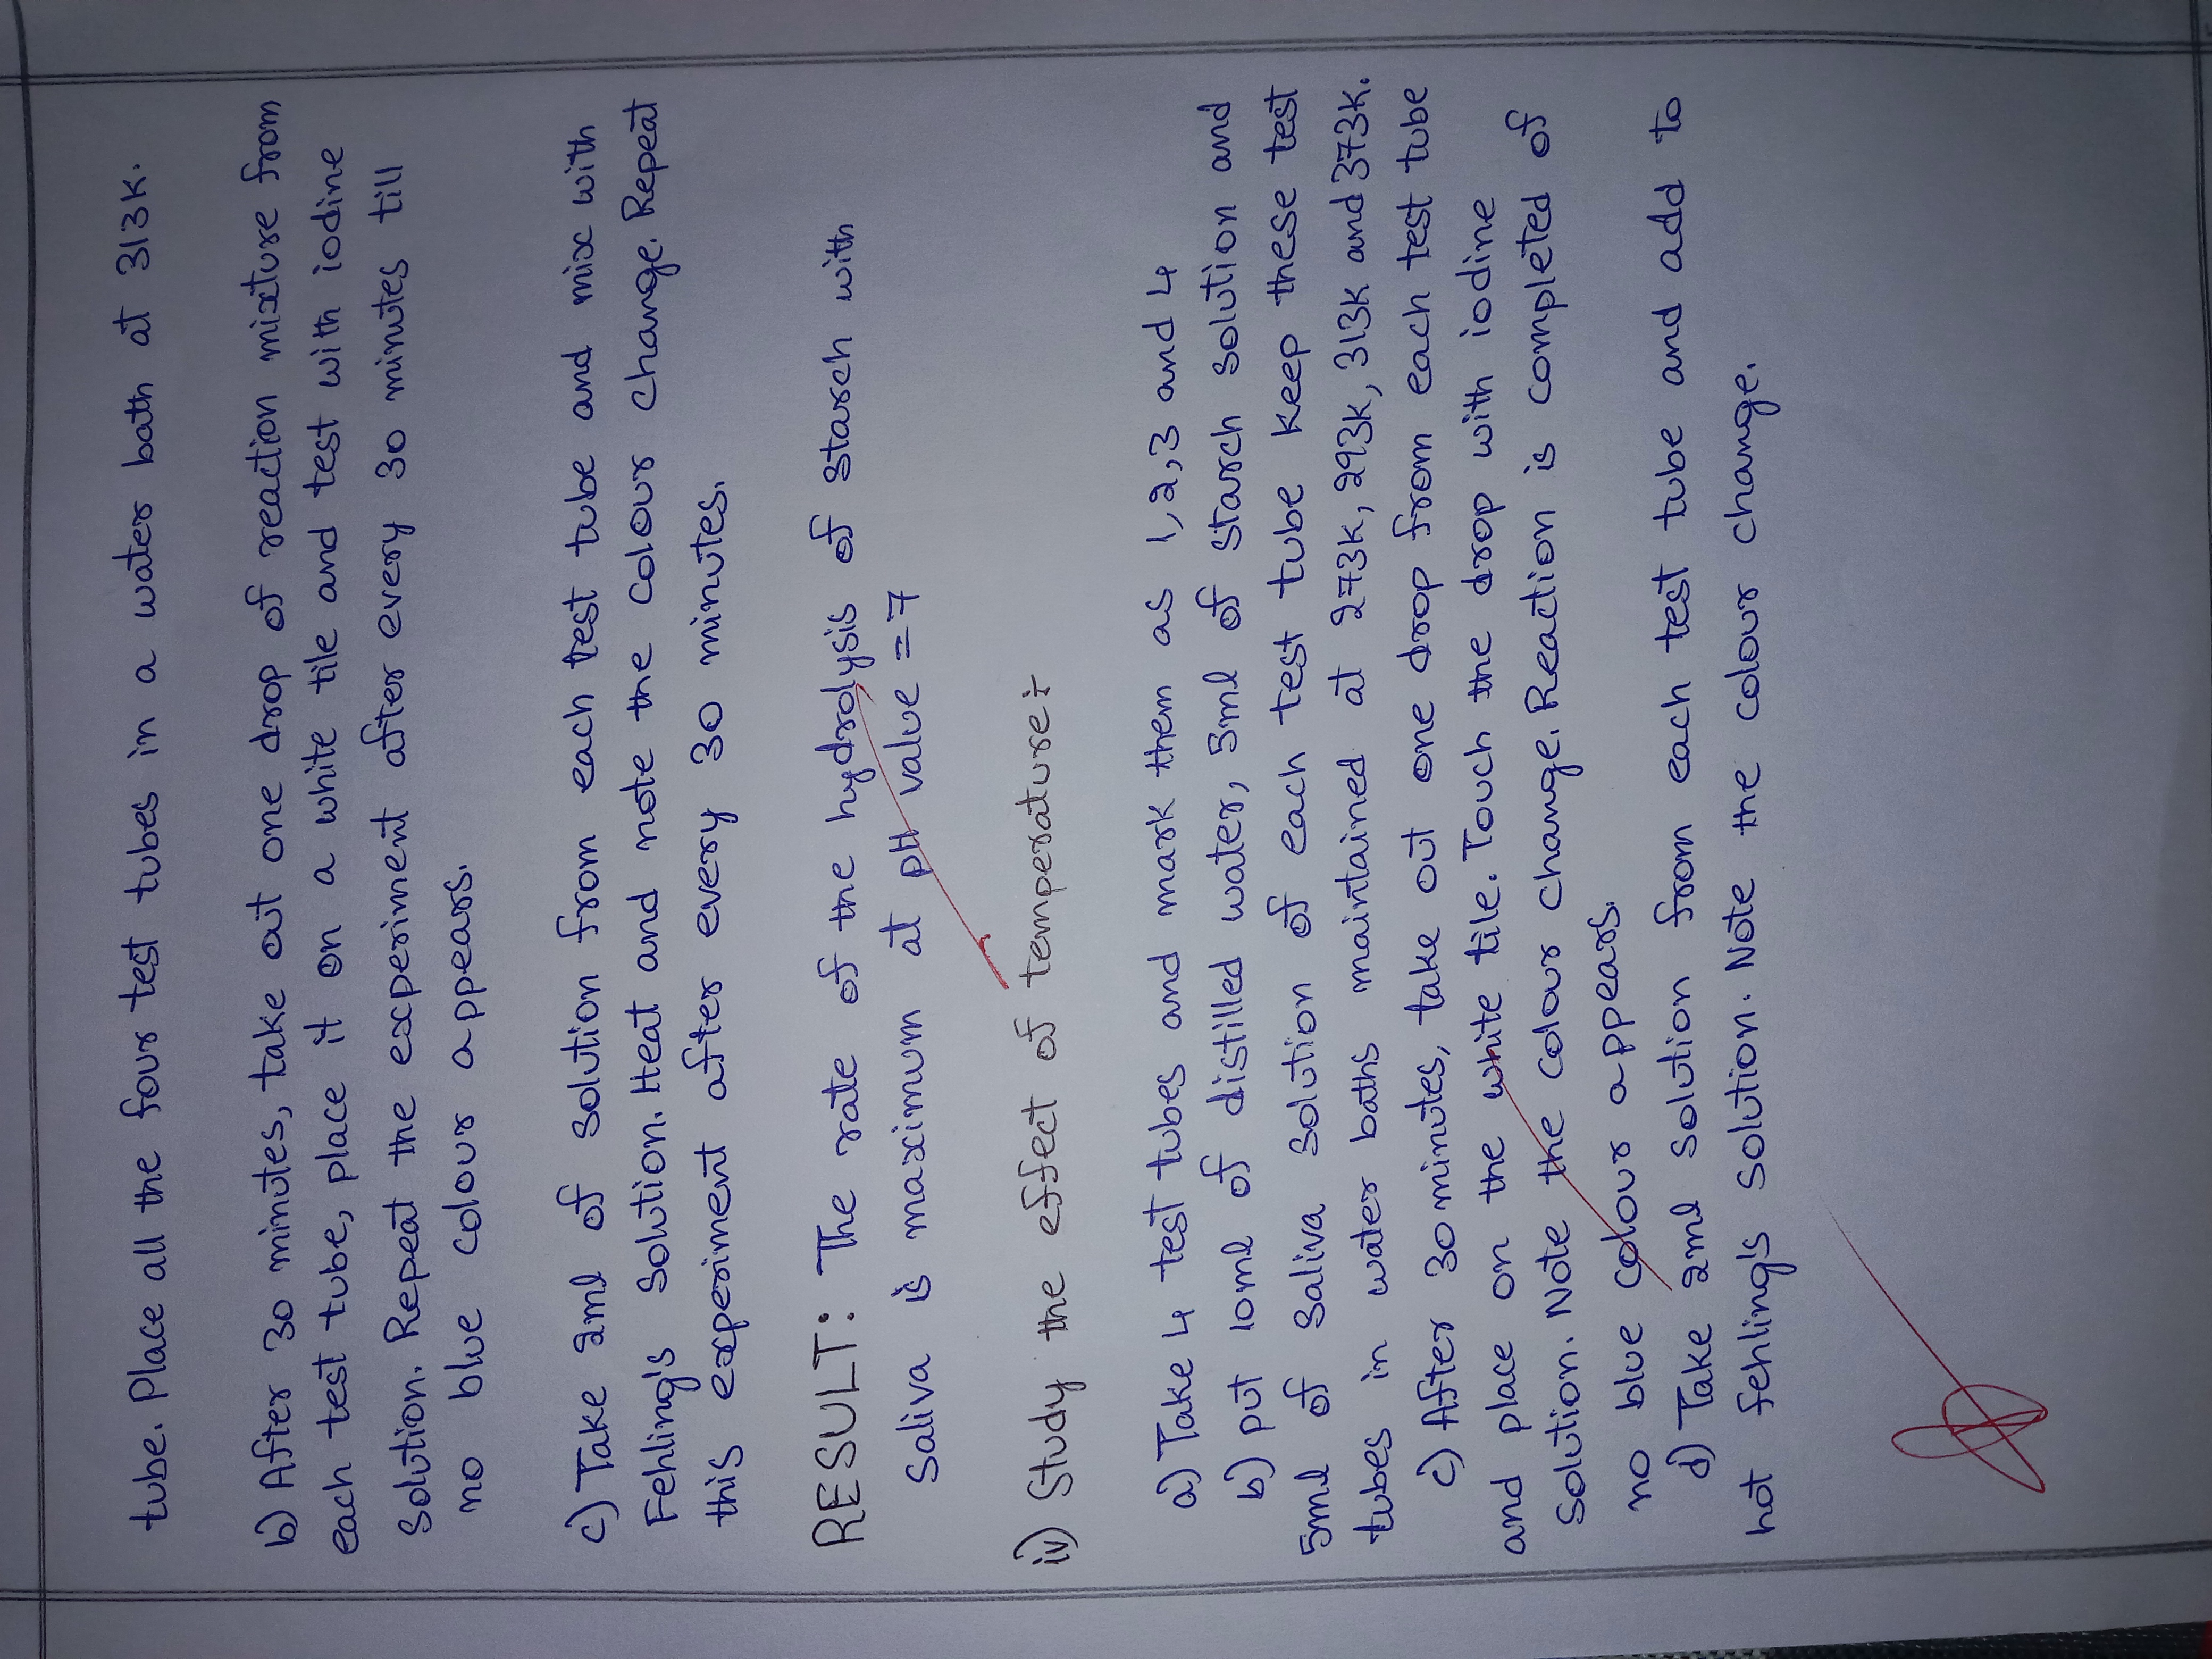 tube. Place all the four test tubes in a water bath at 313K.
b) After 30 minutes, take out one drop of reaction mixture from
each test tube, place it on a white tile and test with iodine
Solution. Repeat the experiment after every 30 minutes till
no blue colour appears.
c) Take 2ml of solution from each test tube and mix with
Fehling's Solution. Heat and note the colour change. Repeat
this experiment after every 30 minutes.
RESULT: The rate of the hydrolysis of starch with
Saliva is maximum at pH value = 7
iv) Study the effect of temperature:-
a) Take 4 test tubes and mark them as 1,2,3 and 4
b) put 10ml of distilled water, 5ml of starch solution and
5ml of Saliva solution of each test tube keep these test
tubes in water baths maintained at 273K, 293K, 313K and 373K.
c) After 30 minutes, take out one drop from each test tube
and place on the white tile. Touch the drop with iodine
Solution. Note the colour change. Reaction is completed of
no blue colour appears.
d) Take 2ml solution from each test tube and add to
hot fehling's solution. Note the colour change.